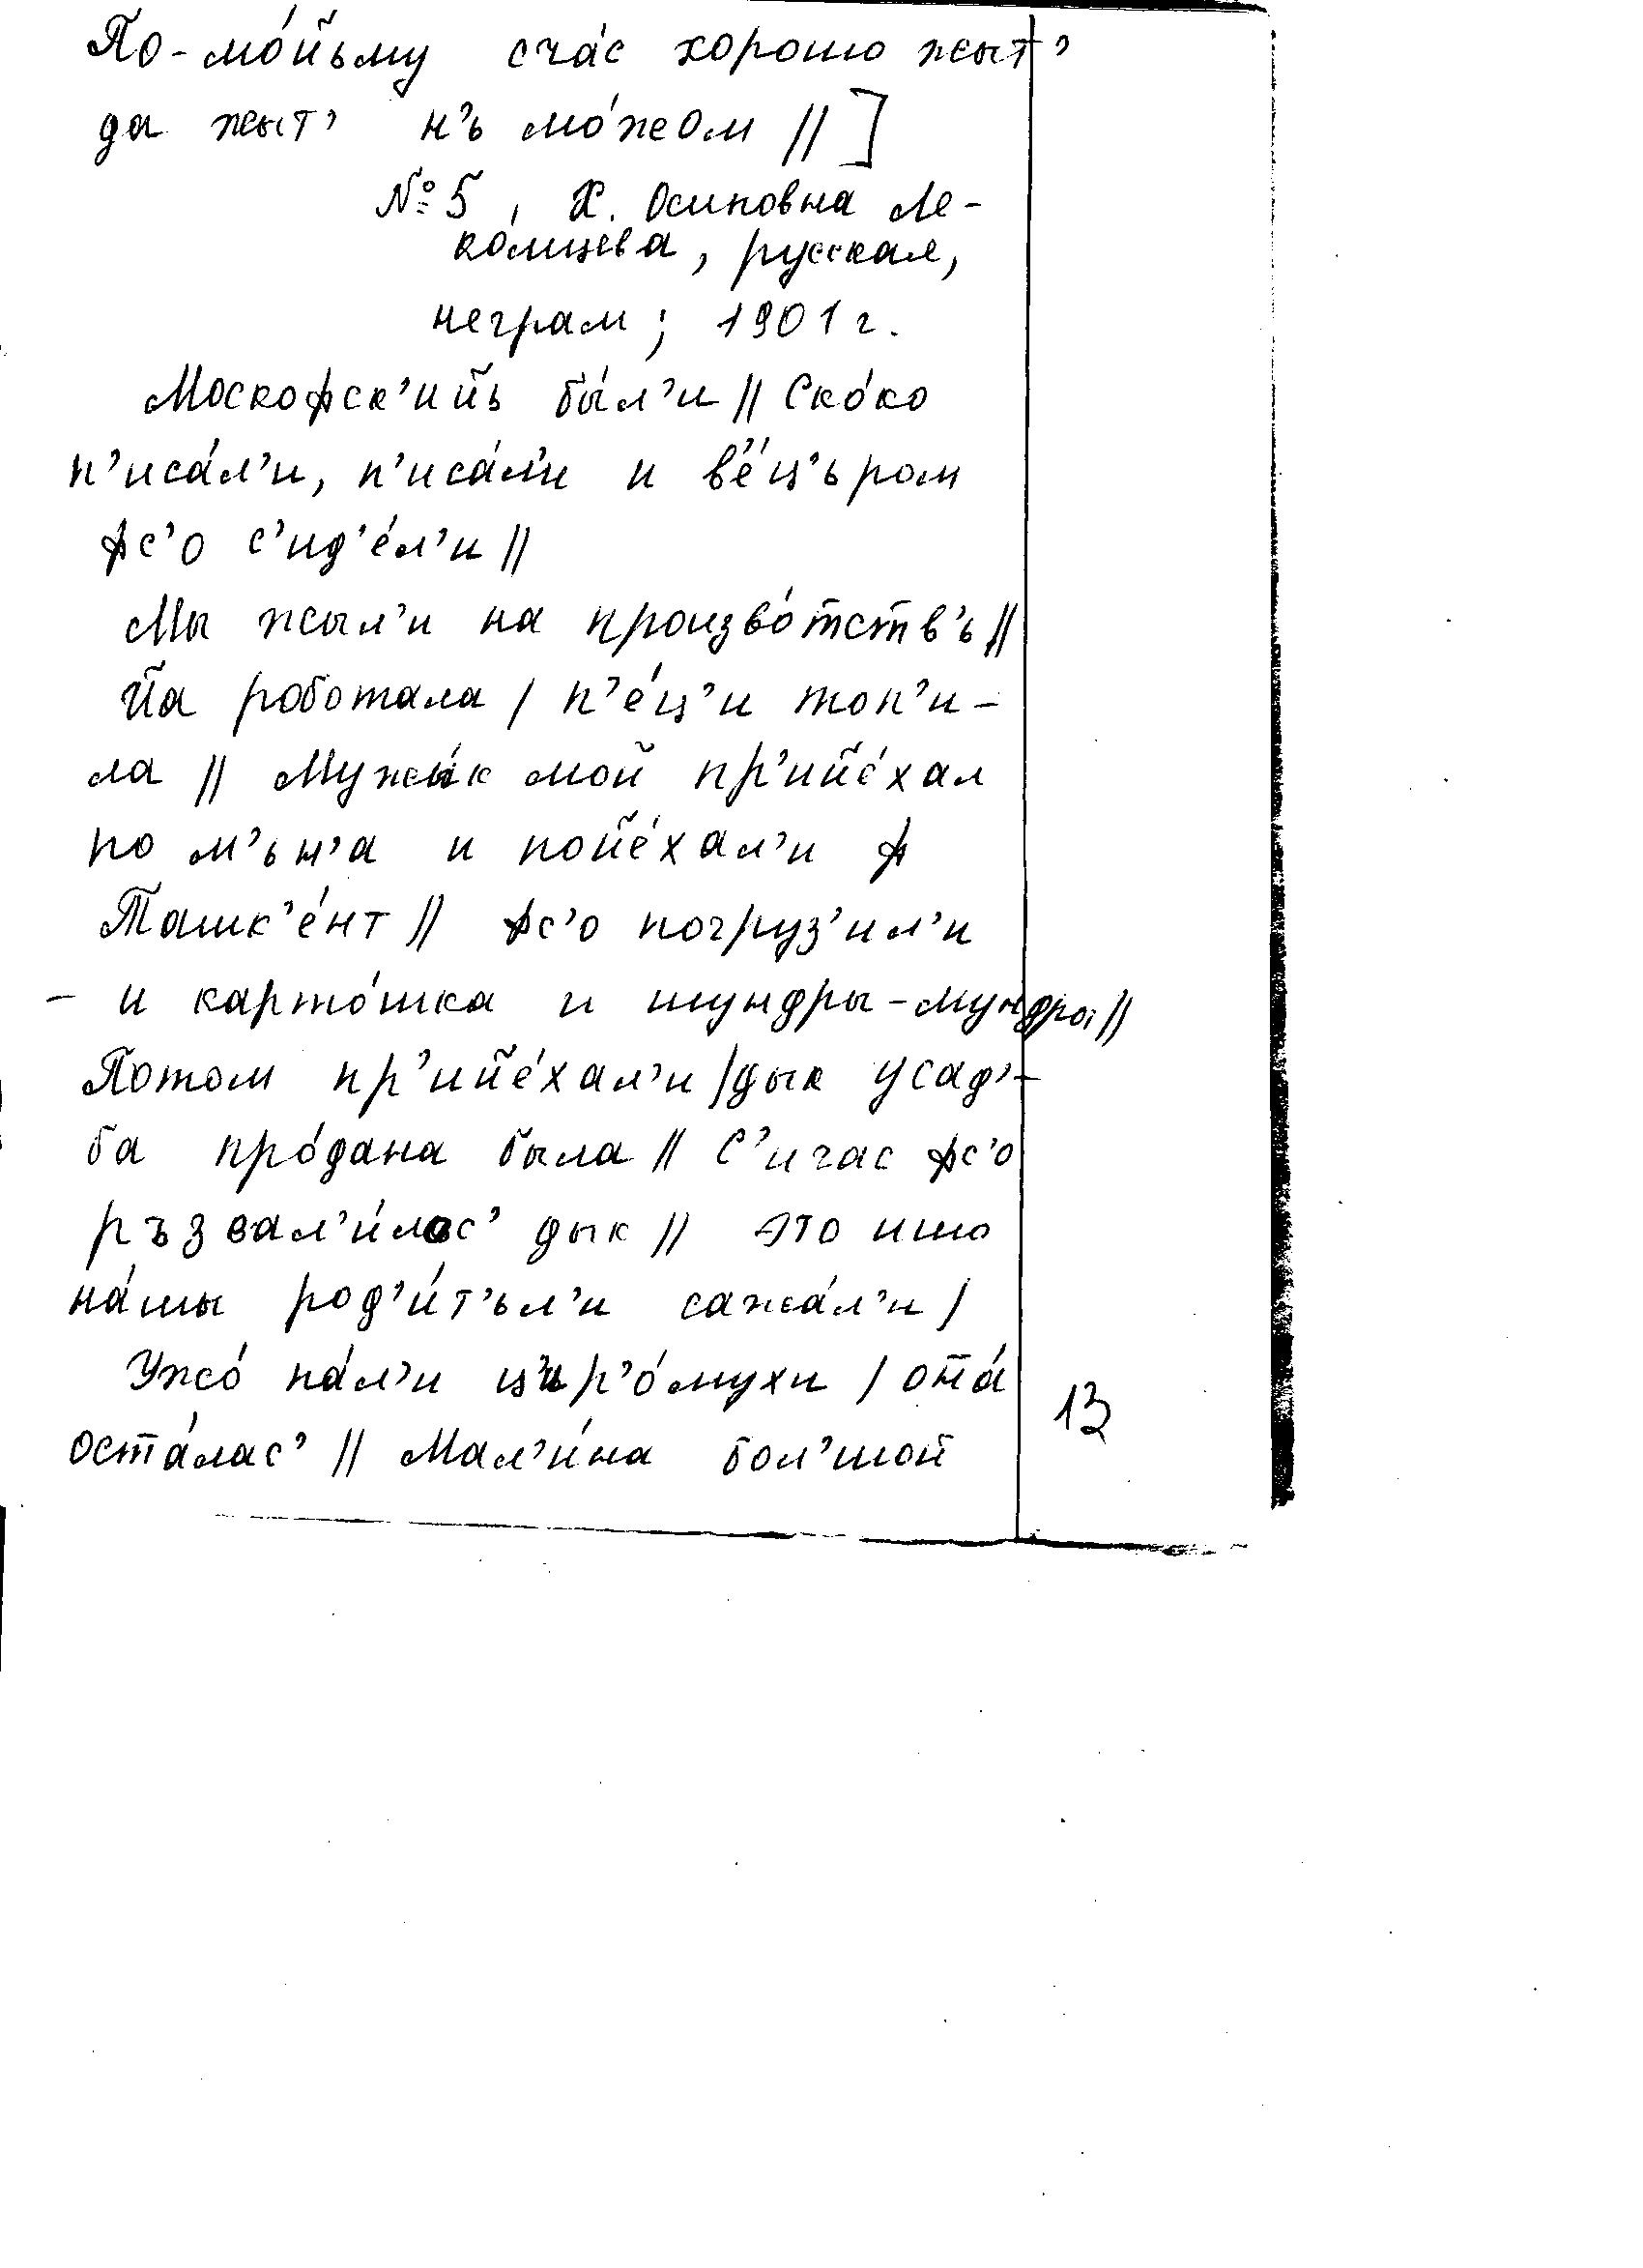 По-мо́йьму сча́с хорошо жыт’
да жыт’ н’ь мо́жом //]
№ 5, Х. Осиповна Ле-
ко́мцева, русская,
неграм; 1901 г.
Москофск’ийь бы́л’и // Ско́ко
п’иса́л’и, п’иса́л’и и в’е́ц’ъром
фс’о с’ид’е́л’и //
Мы жыл’и на произво́тств’ь //
Йа роботала / п’е́ц’и топ’и-
ла // Мужы́к мой пр’ийе́хал
по м’ьн’а и пойе́хал’и ф
Ташк’е́нт // фс’о погруз’ил’и
- и карто́шка и шундры-мундры //
Потом пр’ийе́хал’и / дык усад’-
ба про́дана была // С’ичас фс’о
ръзвал’и́лос’ дык // это ишо
на́шы род’и́т’ьл’и сажа́л’и /
Ужо́ па́л’и ц’ир’о́мухи / отá
оста́лас’ // Мал’и́на бол’шой
13